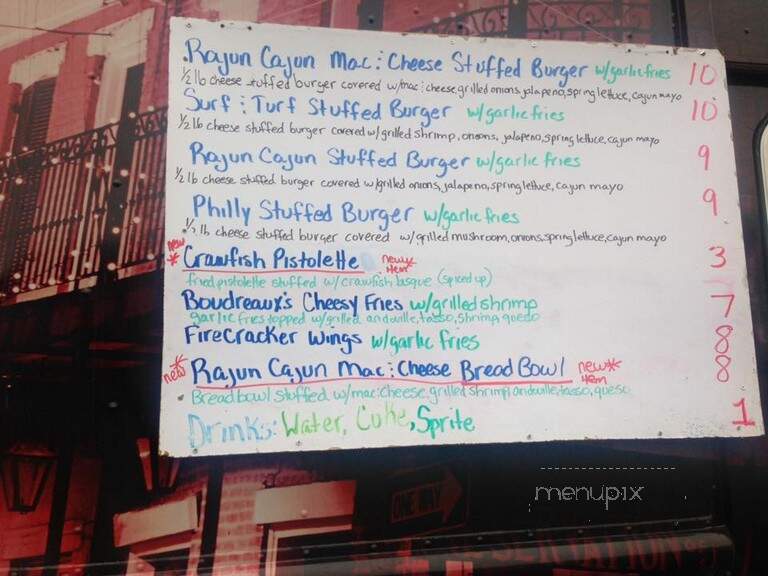 Rajun Cajun Mac : Cheese Stuffed Burger w/garlic fries 10
1/2 lb cheese stuffed burger covered w/mac : cheese, grilled onions, jalapeno, spring lettuce, cajun mayo
Surf : Turf Stuffed Burger w/garlic fries 10
1/2 lb cheese stuffed burger covered w/grilled shrimp, onions, jalapeno, spring lettuce, cajun mayo
Rajun Cajun Stuffed Burger w/garlic fries 9
1/2 lb cheese stuffed burger covered w/grilled onions, jalapeno, spring lettuce, cajun mayo
Philly Stuffed Burger w/garlic fries 9
1/2 lb cheese stuffed burger covered w/grilled mushroom, onions, spring lettuce, cajun mayo
new * Crawfish Pistolette new * Item 3
fried pistolette stuffed w/crawfish bisque (spiced up)
Boudreaux's Cheesy Fries w/grilled shrimp 7
garlic fries topped w/grilled andouille, tasso, shrimp, queso
Firecracker Wings w/garlic fries 8
* new Rajun Cajun Mac : Cheese Bread Bowl new * Item 8
Bread bowl stuffed w/mac : cheese, grilled shrimp, andouille, tasso, queso
Drinks: Water, Coke, Sprite 1
menupix
ONE WAY